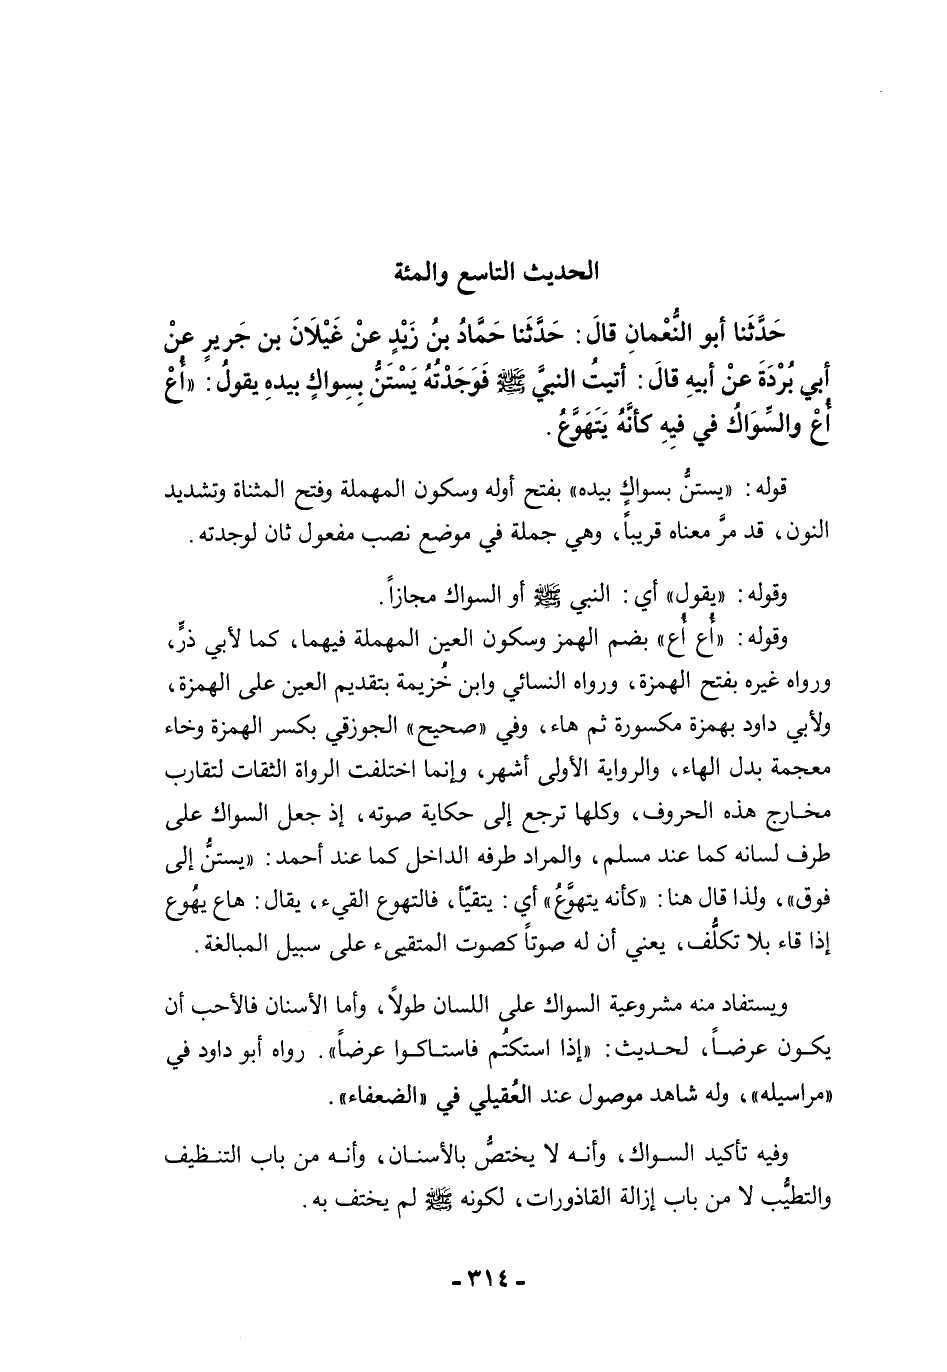 الحديث التاسع والمئة
حَدَّثَنا أبو النُّعْمانِ قالَ: حَدَّثَنا حَمَّادُ بنُ زَيْدٍ عنْ غَيْلَانَ بن جَريرٍ عنْ
أبي بُرْدَةَ عنْ أبيهِ قالَ: أتيتُ النبيَّ ﷺ فَوَجَدْتُهُ يَسْتَنُّ بِسواكٍ بيدهِ يقولُ: «أُعْ
أُعْ والسِّوَاكُ في فيهِ كأنَّهُ يَتَهَوَّعُ.
قوله: «يستنُّ بسواكٍ بيده» بفتح أوله وسكون المهملة وفتح المثناة وتشديد
النون، قد مرَّ معناه قريباً، وهي جملة في موضع نصب مفعول ثان لوجدته.
وقوله: «يقول» أي: النبي ﷺ أو السواك مجازاً.
وقوله: «أُع أُع» بضم الهمز وسكون العين المهملة فيهما، كما لأبي ذرٍّ،
ورواه غيره بفتح الهمزة، ورواه النسائي وابن خُزيمة بتقديم العين على الهمزة،
ولأبي داود بهمزة مكسورة ثم هاء، وفي «صحيح» الجوزقي بكسر الهمزة وخاء
معجمة بدل الهاء، والرواية الأولى أشهر، وإنما اختلفت الرواة الثقات لتقارب
مخارج هذه الحروف، وكلها ترجع إلى حكاية صوته، إذ جعل السواك على
طرف لسانه كما عند مسلم، والمراد طرفه الداخل كما عند أحمد: «يستنُّ إلى
فوق»، ولذا قال هنا: «كأنه يتهوَّعُ» أي: يتقيّأ، فالتهوع القيء، يقال: هاع يهُوع
إذا قاء بلا تكلُّف، يعني أن له صوتاً كصوت المتقيىء على سبيل المبالغة.
ويستفاد منه مشروعية السواك على اللسان طولاً، وأما الأسنان فالأحب أن
يكون عرضاً، لحديث: «إذا استكتُم فاستاكوا عرضاً». رواه أبو داود في
«مراسيله»، وله شاهد موصول عند العُقيلي في «الضعفاء».
وفيه تأكيد السواك، وأنه لا يختصُّ بالأسنان، وأنه من باب التنظيف
والتطيُّب لا من باب إزالة القاذورات، لكونه ﷺ لم يختف به.
- ٣١٤ -